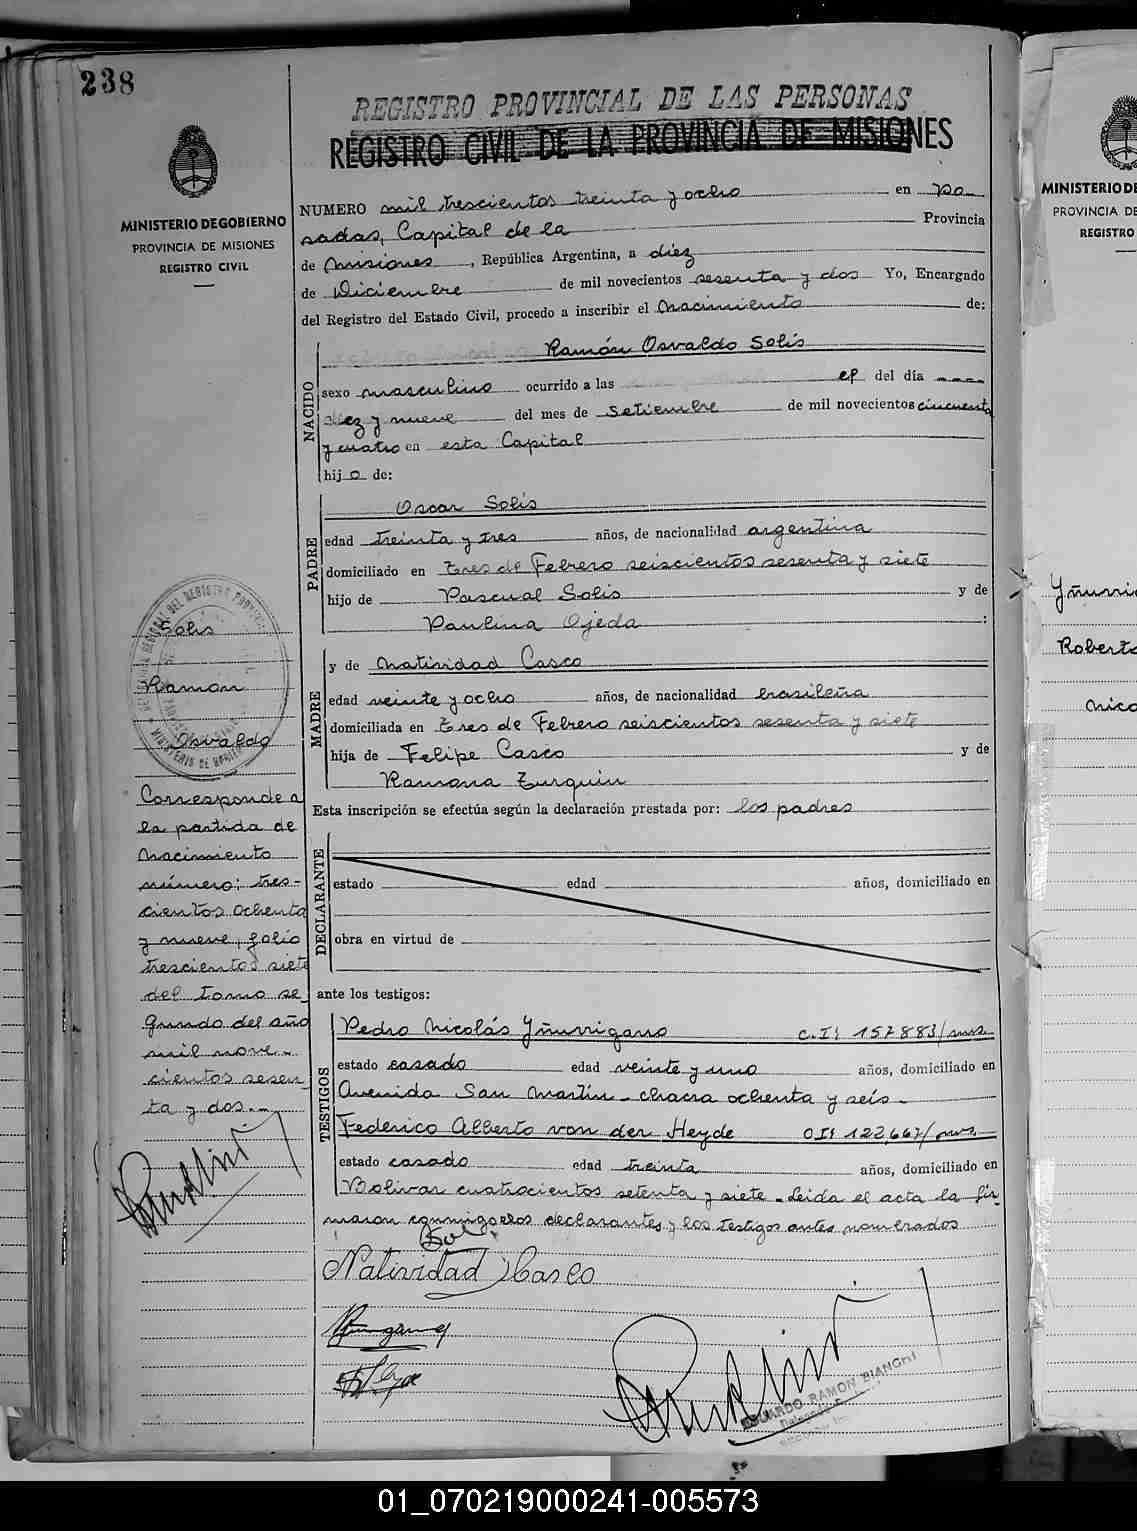 238
REGISTRO PROVINCIAL DE LAS PERSONAS
REGISTRO CIVIL DE LA PROVINCIA DE MISIONES
MINISTERIO DE GOBIERNO
PROVINCIA DE MISIONES
REGISTRO CIVIL
NUMERO mil trescientos treinta y ocho en Po
sadas, Capital de la Provincia
de Misiones, República Argentina, a diez
de Diciembre de mil novecientos sesenta y dos Yo, Encargado
del Registro del Estado Civil, procedo a inscribir el nacimiento de:
NACIDO
Ramón Osvaldo Solis
sexo masculino ocurrido a las el del día
diez y nueve del mes de setiembre de mil novecientos cincuenta
y cuatro en esta Capital
hijo de:
PADRE
Oscar Solis
edad treinta y tres años, de nacionalidad argentina
domiciliado en Tres de Febrero seiscientos sesenta y siete
hijo de Pascual Solis y de
Paulina Ojeda :
MADRE
y de Natividad Casco
edad veinte y ocho años, de nacionalidad brasileña
domiciliada en Tres de Febrero seiscientos sesenta y siete
hija de Felipe Casco y de
Ramona Turquin
Esta inscripción se efectúa según la declaración prestada por: los padres
DECLARANTE
estado edad años, domiciliado en
obra en virtud de
ante los testigos:
TESTIGOS
Pedro Nicolás Yñurrigarro C.I: 157883/mns.
estado casado edad veinte y uno años, domiciliado en
Avenida San Martín - chacra ochenta y seis -
Federico Alberto von der Heyde C.I: 122,667/mns.
estado casado edad treinta años, domiciliado en
Bolivar cuatrocientos setenta y siete - Leida el acta la fir-
maron conmigo los declarantes y los testigos antes nombrados
Natividad Casco
EDUARDO RAMON BIANCHI
Solis
Ramón
Osvaldo
Corresponde a
la partida de
nacimiento
número: tres-
cientos ochenta
y nueve, folio
trescientos siete
del tomo se-
gundo del año
mil nove-
cientos sesen-
ta y dos.-
MINISTERIO DE
PROVINCIA DE
REGISTRO
Yñurri
Roberto
Nico
01_070219000241-005573